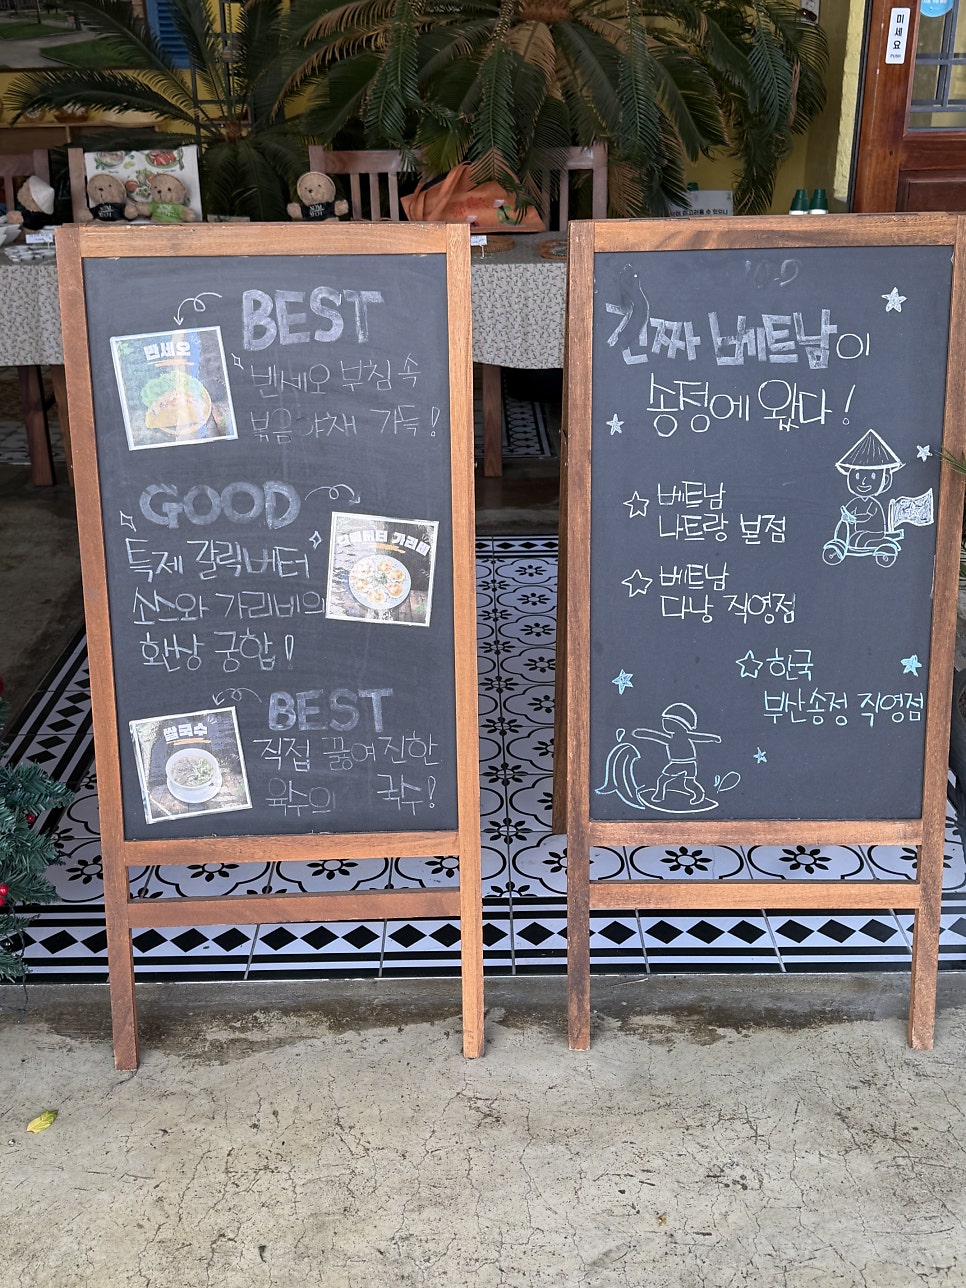 BEST
반세오
반세오 부침 속
볶음야채 가득!
GOOD
특제 갈릭버터
소스와 가리비의
환상 궁합!
BEST
쌀국수
직접 끓여 진한
육수의 국수!
미세요
PUSH
긴짜 베트남이
송정에 왔다!
베트남
나트랑 본점
베트남
다낭 직영점
한국
부산송정 직영점